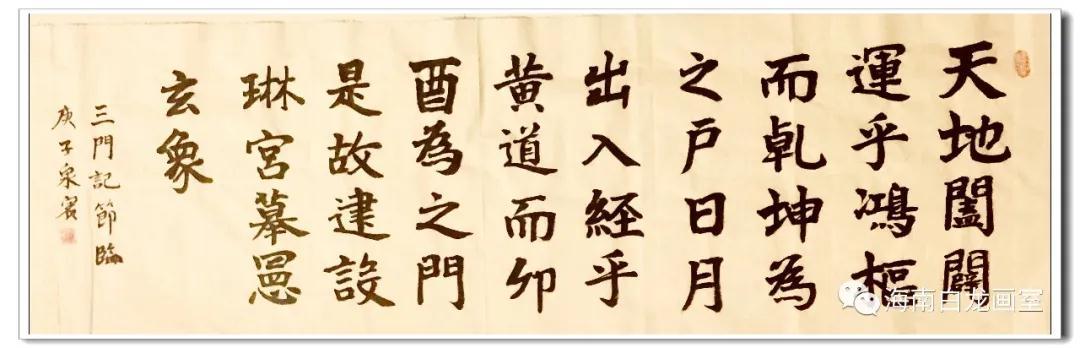 天地闔闢
運乎鴻樞
而乹坤為
之戶日月
出入経乎
黄道而夘
酉為之門
是故建設
琳宮摹憲
玄象
三門記節臨
庚子泉賓
海南白龙画室